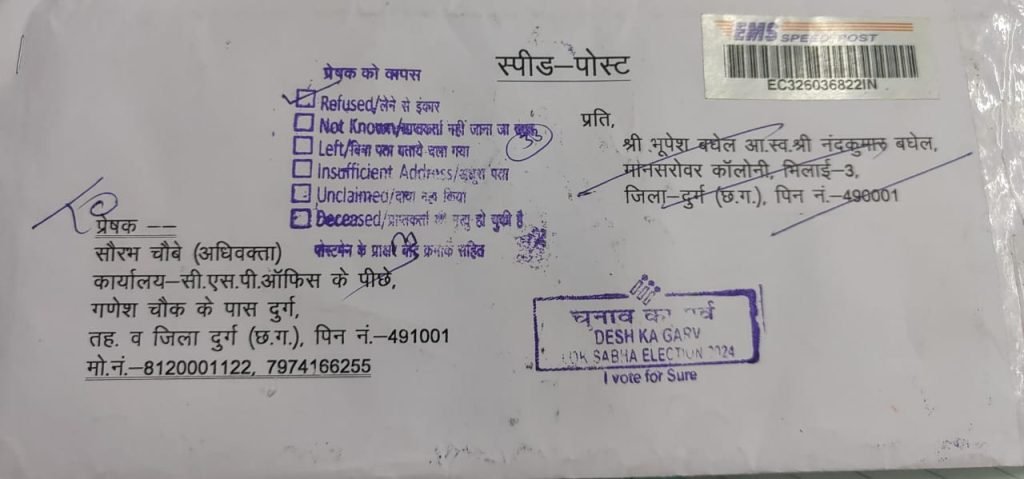 EMS SPEED POST
EC326036822IN
स्पीड–पोस्ट
प्रेषक को वापस
Refused/लेने से इंकार
Not Known/प्राप्तकर्ता नहीं जाना जा
Left/बिना पता बताये चला गया
Insufficient Address/अधूरा पता
Unclaimed/दावा नहीं किया
Deceased/प्राप्तकर्ता की मृत्यु हो चुकी है
पोस्टमेन के क्रमांक सहित
प्रति,
श्री भूपेश बघेल आ.स्व.श्री नंदकुमार बघेल,
मानसरोवर कॉलोनी, भिलाई–3,
जिला–दुर्ग (छ.ग.), पिन नं.–490001
प्रेषक ––
सौरभ चौबे (अधिवक्ता)
कार्यालय–सी.एस.पी.ऑफिस के पीछे,
गणेश चौक के पास दुर्ग,
तह. व जिला दुर्ग (छ.ग.), पिन नं.–491001
मो.नं.–8120001122, 7974166255
चुनाव का पर्व
DESH KA GARV
LOK SABHA ELECTION 2024
I vote for Sure